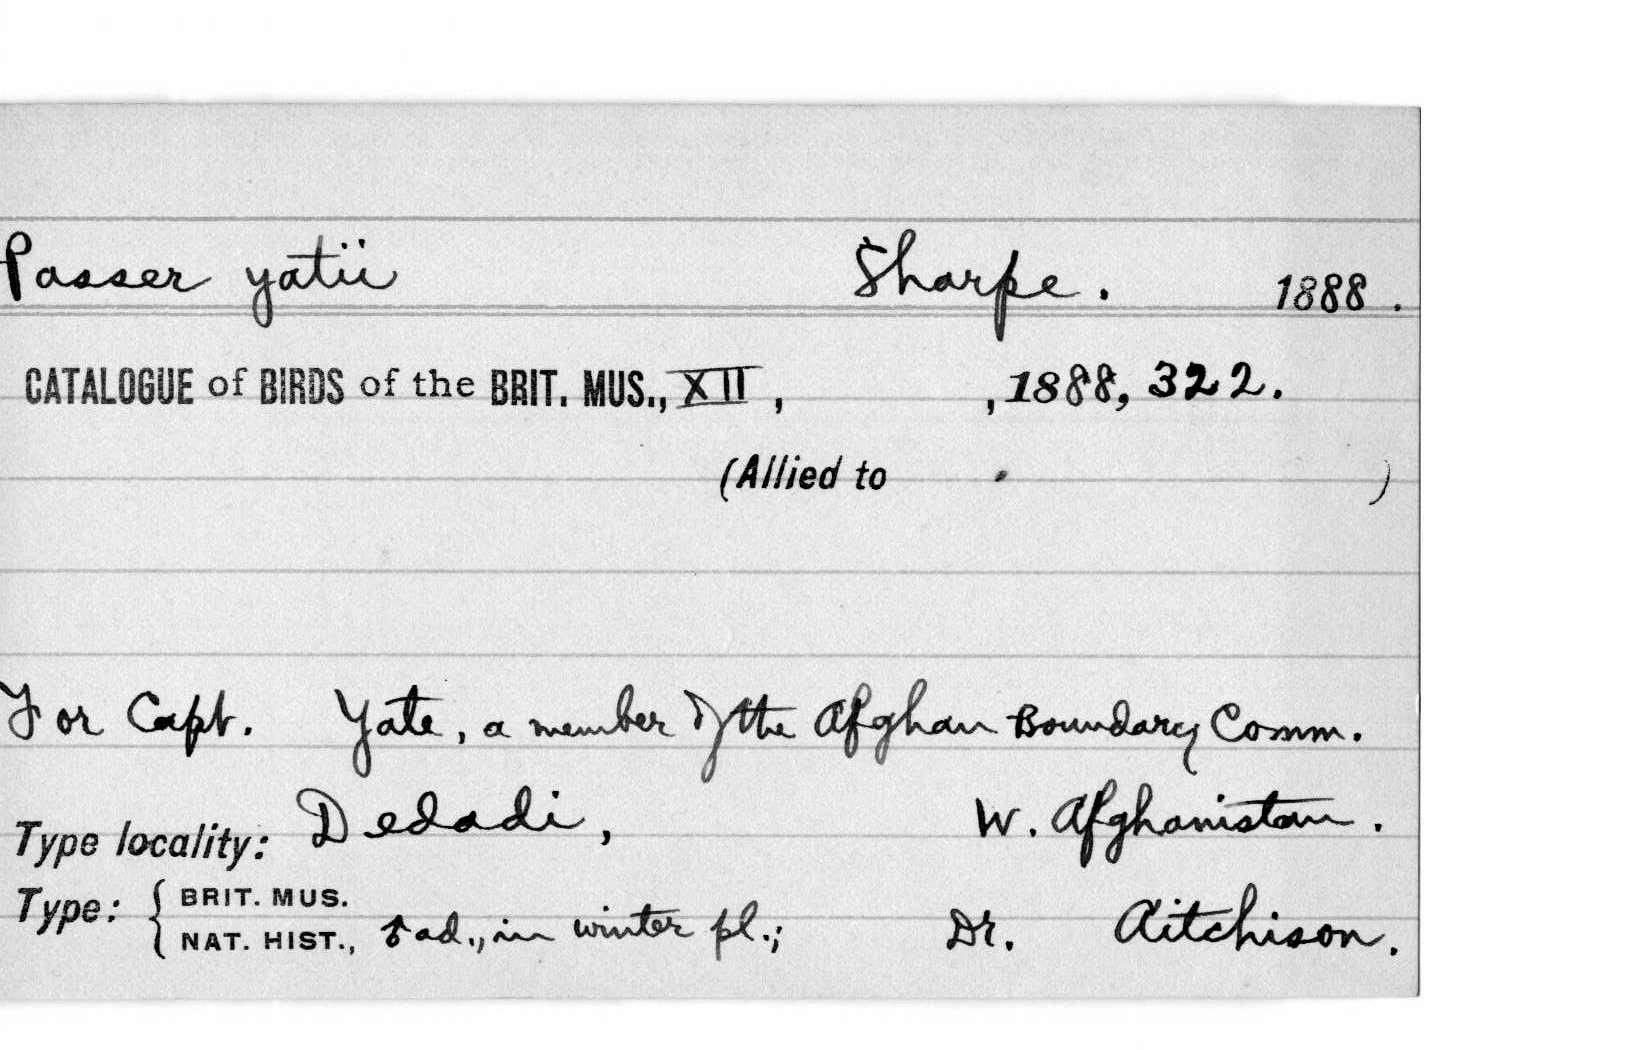 Passer yatii Sharpe. 1888.
CATALOGUE of BIRDS of the BRIT. MUS., XII, , 1888, 322.
(Allied to )
For Capt. Yate, a member of the Afghan Boundary Comm.
Type locality: Dedadi, W. Afghanistan.
Type: { BRIT. MUS.
NAT. HIST., ♂ ad., in winter pl.; Dr. Aitchison.